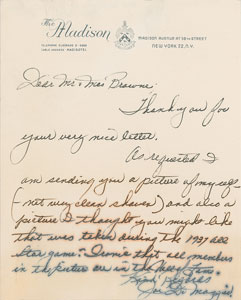 The Madison
MADISON AVENUE AT 58TH STREET
NEW YORK 22, N.Y.
Dear Mr + Mrs Browne:
Thank you for
your very nice letter.
As requested I
am sending you a picture of myself
(- not very clean shaven) and also a
picture I thought you might like
that was taken during the 1937 all
star game. Ironic that all members
in the picture are in the Hall
Joe Di Maggio